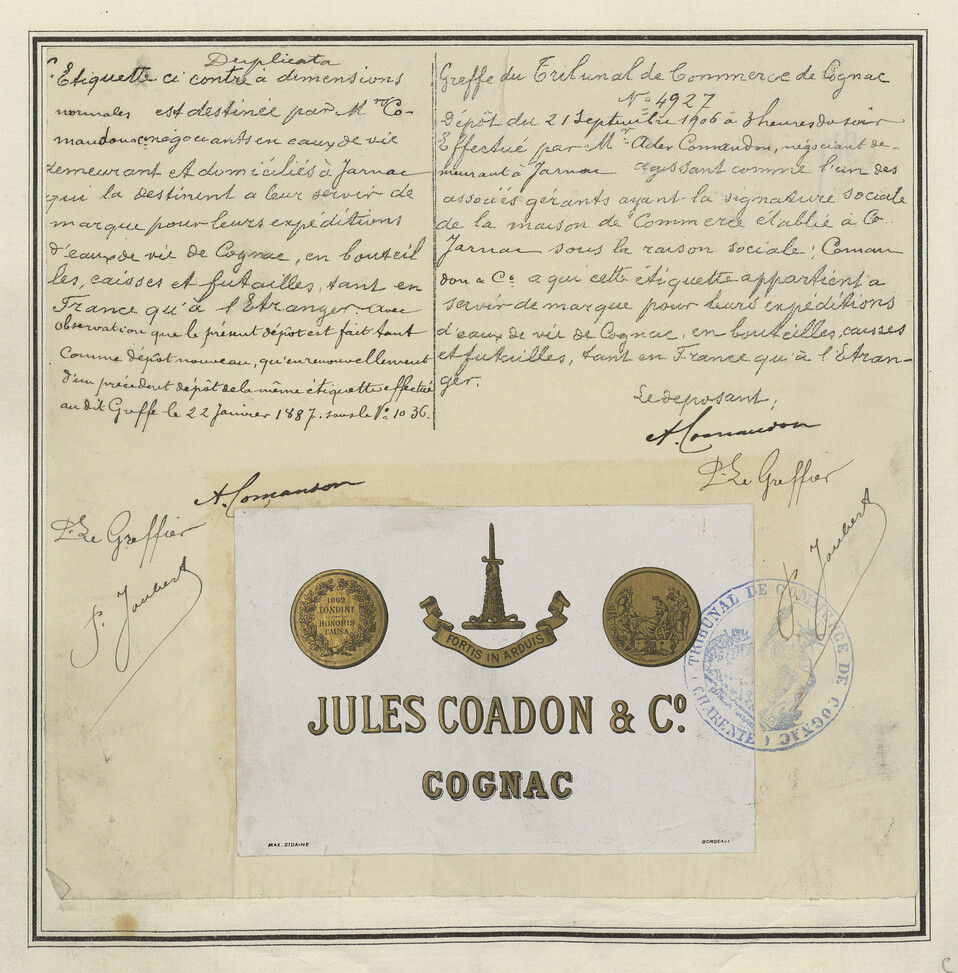 Duplicata
L'Etiquette ci contre à dimensions
normales est destinée par Mrs Co-
mandon & Co négociants en eaux de vie
demeurant et domiciliés à Jarnac
qui la destinent a leur servir de
marque pour leurs expéditions
d'eaux de vie de Cognac, en bouteil
les, caisses et futailles, tant en
France qu'à l'Etranger. avec
observation que le présent dépôt est fait tant
comme dépôt nouveau, qu'en renouvellement
d'un précédent dépôt de la même étiquette effectué
au dit Greffe le 22 Janvier 1887. sous le No. 1036.
A. Comandon
P. Le Greffier
P. Joubert
Greffe du Tribunal de Commerce de Cognac
No 4927
Dépôt du 21 Septembre 1906 à 3 heures du soir
Effectué par Mr Ader Comandon, négociant de-
meurant à Jarnac agissant comme l'un des
associés gérants ayant la signature sociale
de la maison de Commerce établie à Co
Jarnac sous la raison sociale; Coman
don & Co a qui cette étiquette appartient a
servir de marque pour leurs expéditions
d'eaux de vie de Cognac, en bouteilles, caisses
et futailles, tant en France qu'à l'Etran-
ger.
Le déposant,
A. Comandon
P. Le Greffier
P. Joubert
1862
LONDINI
HONORIS
CAUSA
FORTIS IN ARDUIS
JULES COADON & Co.
COGNAC
MAX. SIDAINE
BORDEAUX
TRIBUNAL DE COMMERCE DE COGNAC
(CHARENTE)